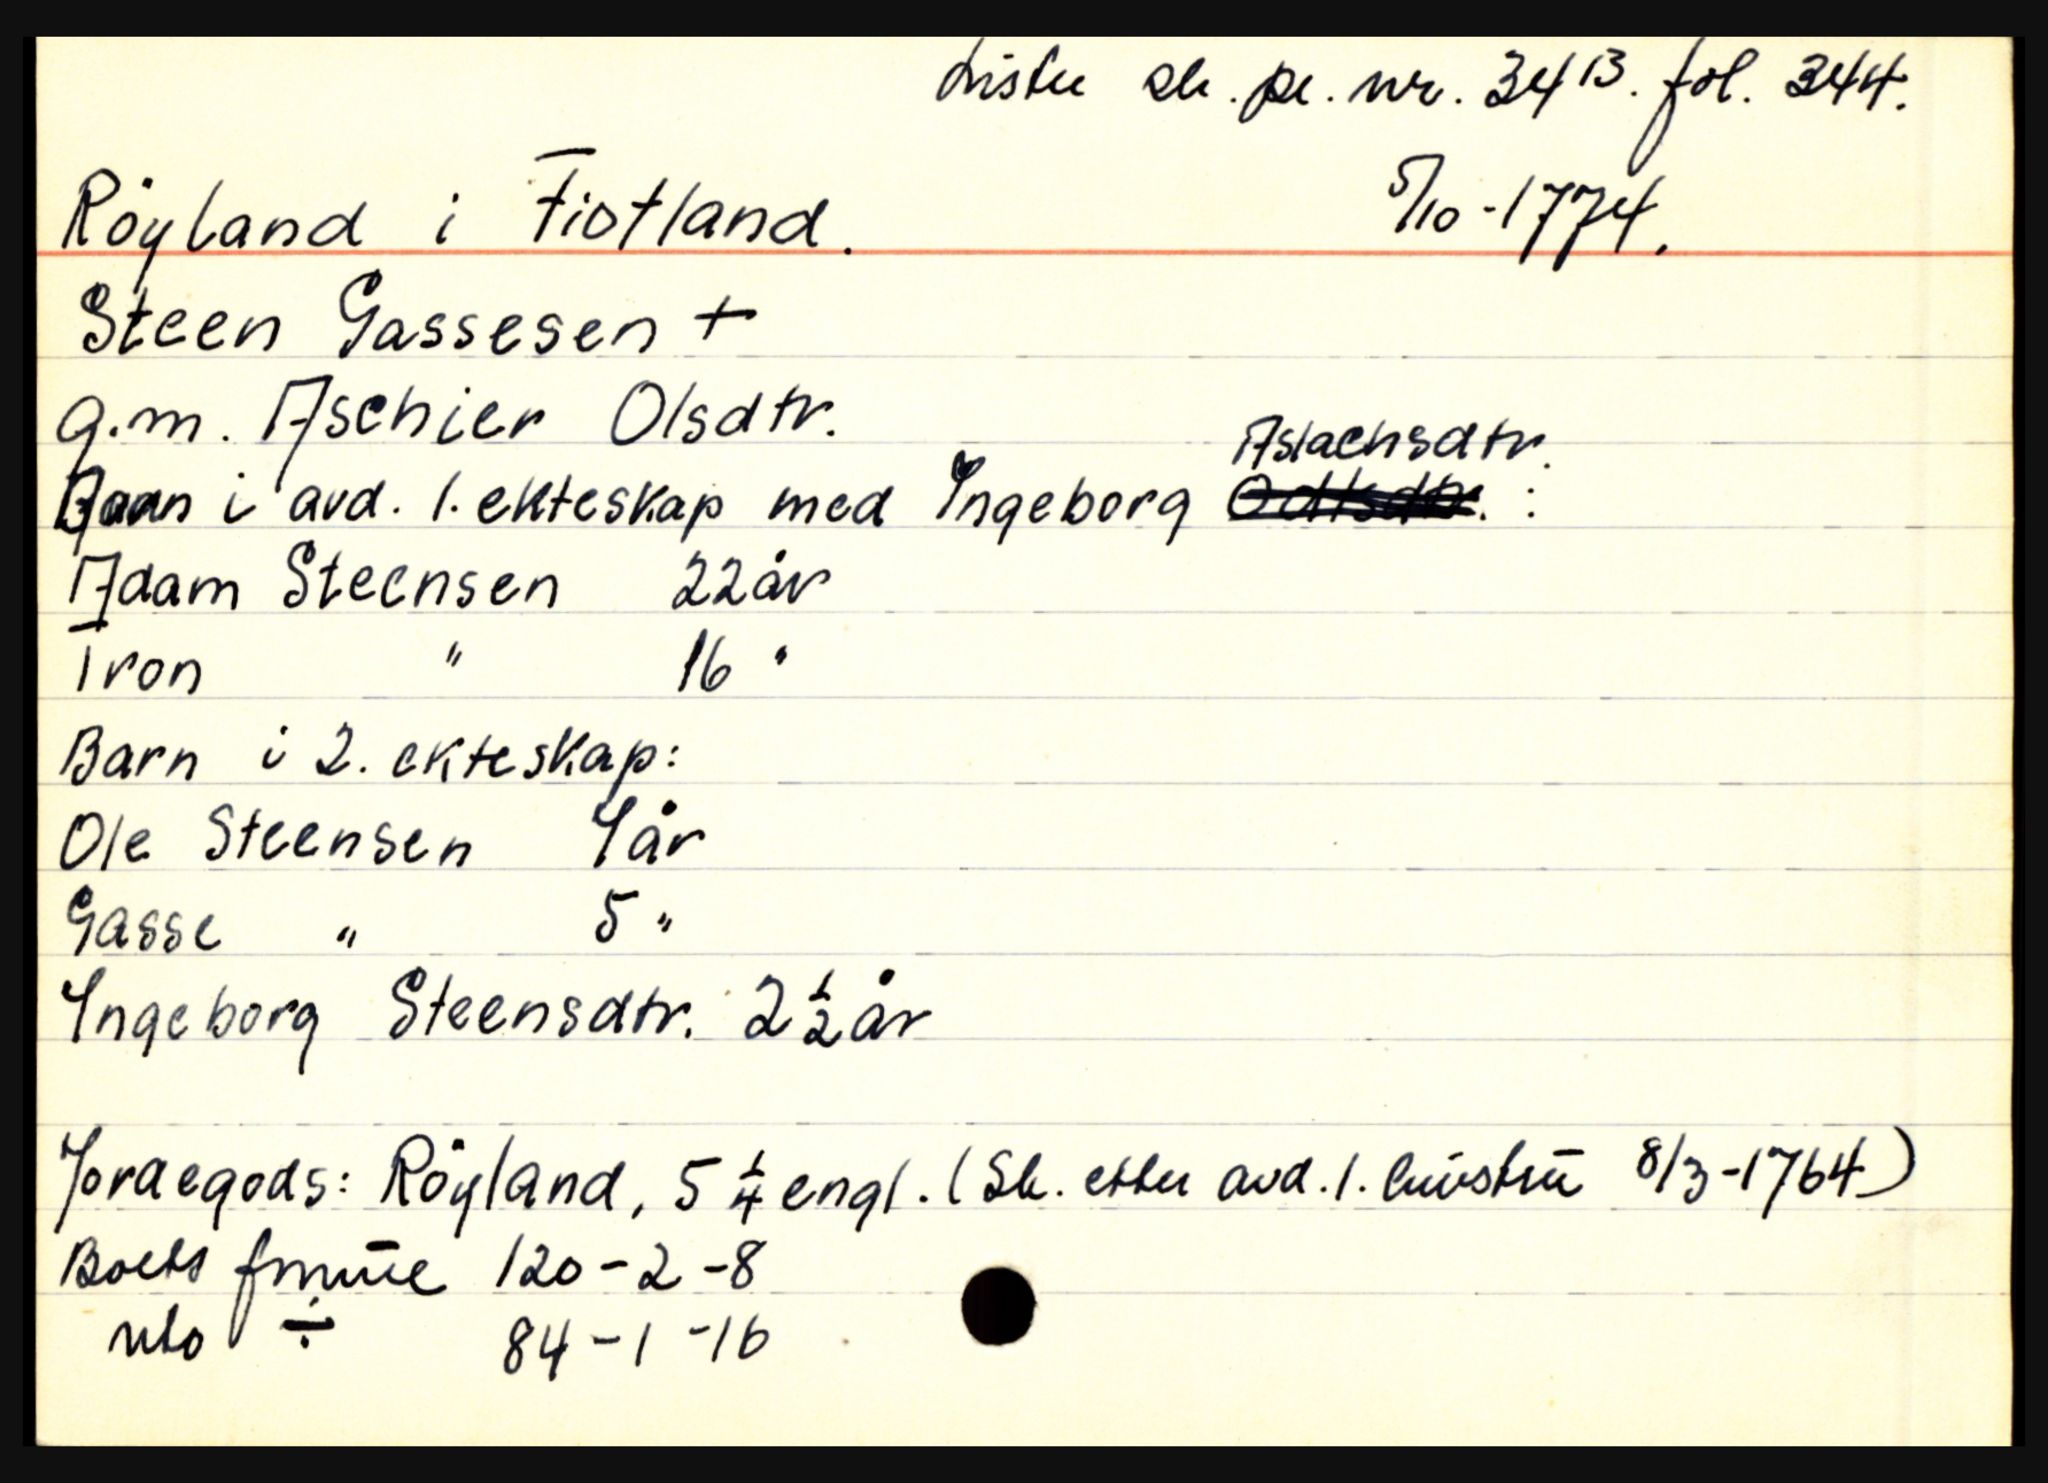 Lister sk. pr. nr. 34 B. fol. 344.
Röyland i Fiotland. 5/10-1774.
Steen Gassesen +
g.m. Aschier Olsdtr.
Aslachsdtr.
Barn i avd. 1. ekteskap med Ingeborg :
Adam Steensen 22 år
Tron " 16 "
Barn i 2. ekteskap:
Ole Steensen 9 år
Gasse " 5 "
Ingeborg Steensdtr. 2 1/2 år
Jordegods: Röyland, 5 1/4 engl. (Sk. etter avd. 1. hustru 8/3-1764)
Boets 120-2-8
nto ÷ 84-1-16